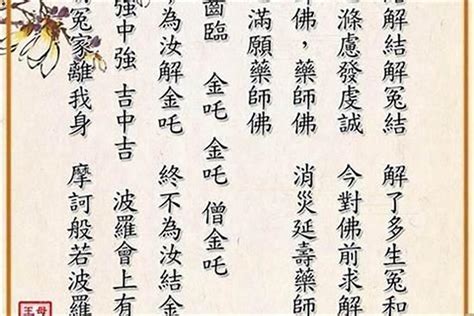 結解結解冤結 解了多生冤和
心滌慮發虔誠 今對佛前求解
師佛，藥師佛 消災延壽藥師
滿願藥師佛
齒臨 金吒 金吒 僧金吒
為汝解金吒 終不為汝結金
強中強 吉中吉 波羅會上有
冤家離我身 摩訶般若波羅